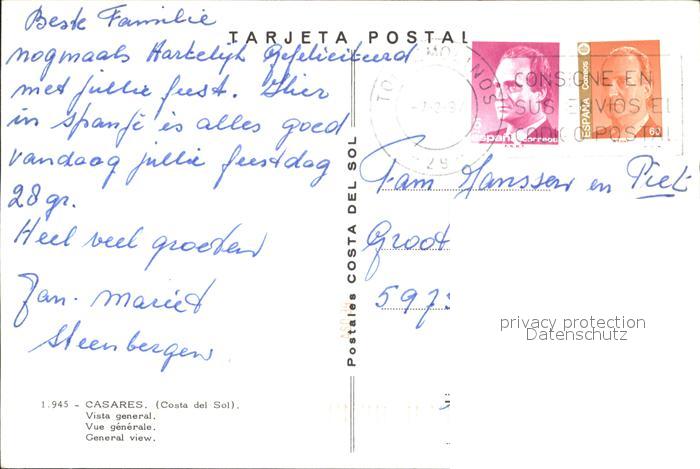 TARJETA POSTAL
Beste Familie
nogmaals Hartelijk Gefeliciteerd
met jullie feest. Hier
in spanje is alles goed
vandaag jullie feestdag
28 gr.
Heel veel groeten
Jan. Mariet
Steenbergen
1.945 - CASARES. (Costa del Sol).
Vista general.
Vue générale.
General view.
Postales COSTA DEL SOL
TORREMOLINOS
CONSIGNE EN
SUS ENVIOS EL
CODIGO POSTAL
España Correos
ESPAÑA Correos 60
Fam Janssen en Piet
Groot
597
privacy protection
Datenschutz